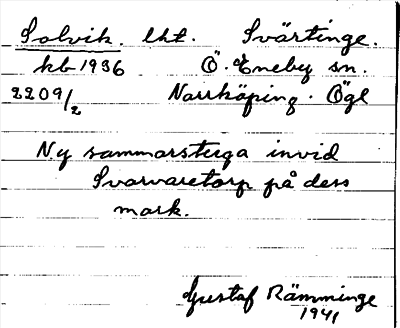 Solvik. lht. Svärtinge.
kb 1936 Ö. Eneby sn.
2209/2 Norrköping. Ögl
Ny sommarstuga invid
Svarvaretorp på dess
mark.
Gustaf Rämminge
1941